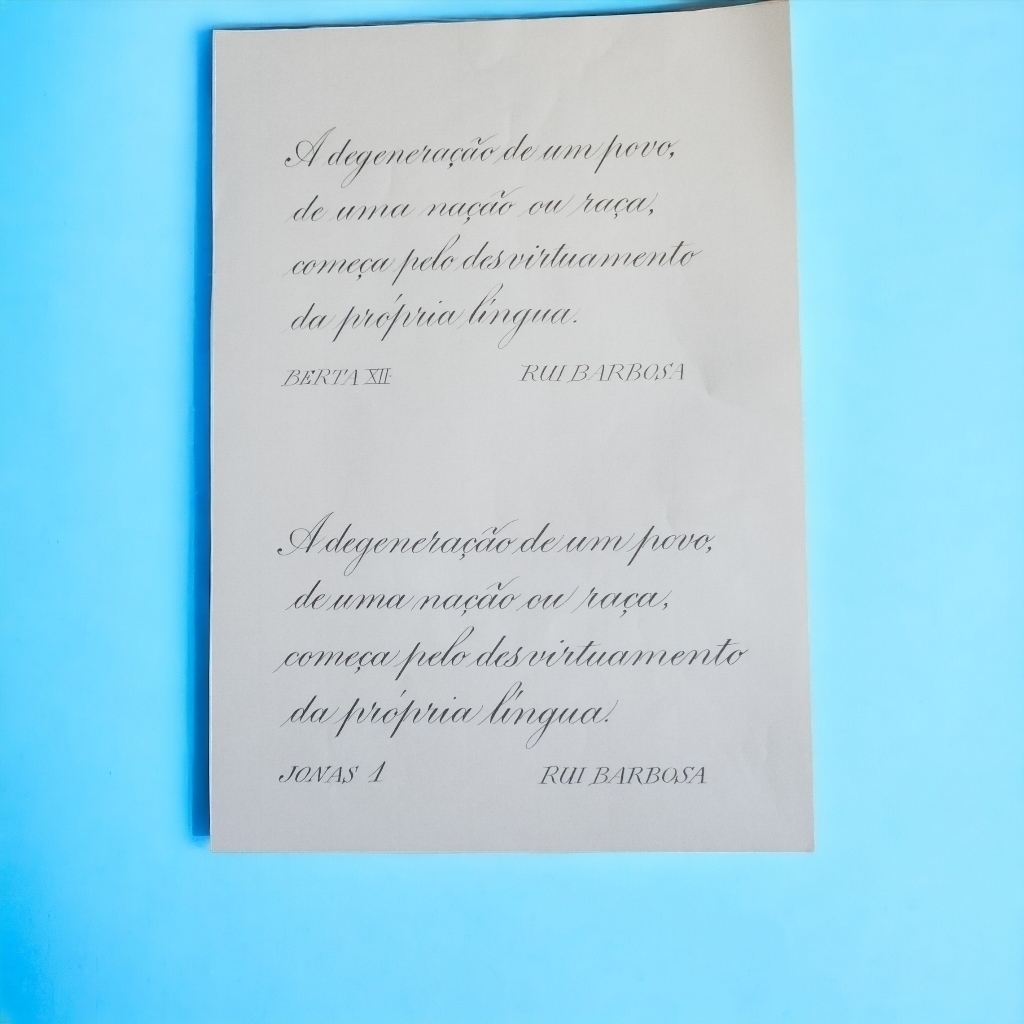 A degeneração de um povo,
de uma nação ou raça,
começa pelo desvirtuamento
da própria língua.
BERTA XII RUI BARBOSA
A degeneração de um povo,
de uma nação ou raça,
começa pelo desvirtuamento
da própria língua.
JONAS 1 RUI BARBOSA